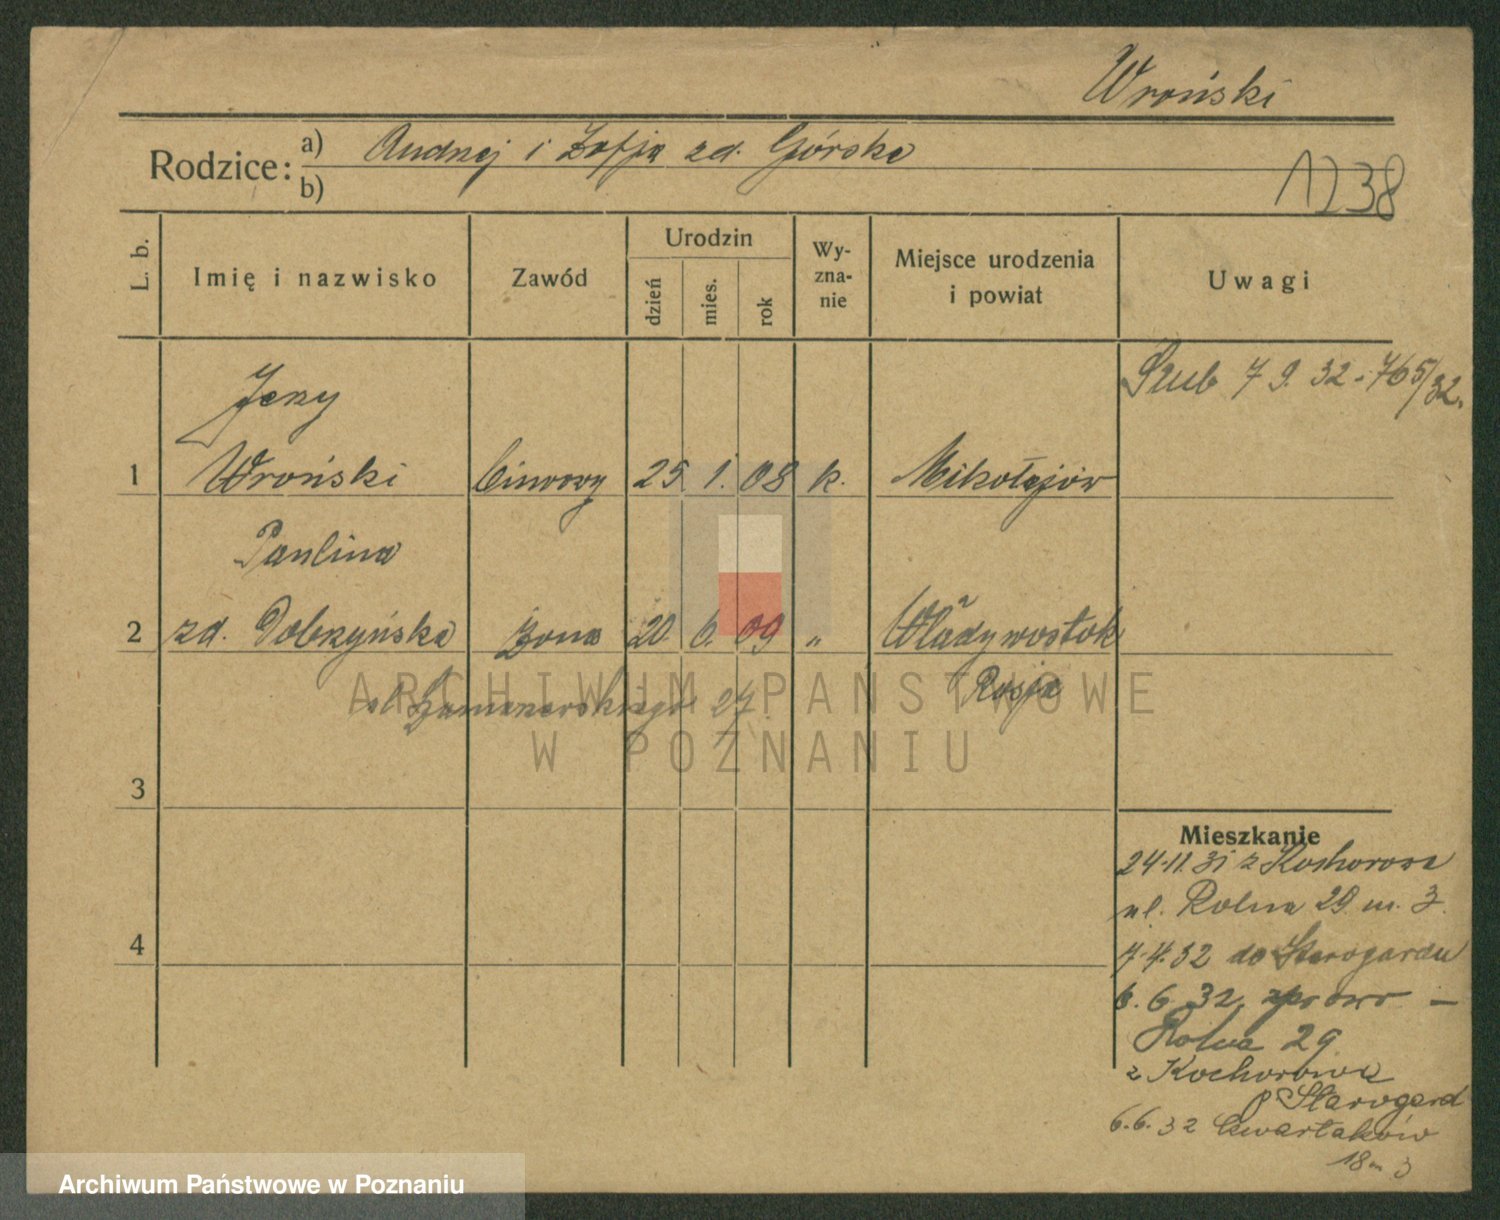 Wroński
Rodzice: a) Andrzej i Zofja zd. Górska
b)
1238
L. b.
Imię i nazwisko
Zawód
Urodzin
dzień
mies.
rok
Wy-
zna-
nie
Miejsce urodzenia
i powiat
Uwagi
Ślub 7 9. 32 - 765/32.
Jerzy
1 Wroński 25. 1. 08 k. Mikołajów
Paulina
2 zd. Dobrzyńska Żona 20 6. 09 " Władywostok
Rosja
27
ARCHIWUM PAŃSTWOWE
W POZNANIU
3
4
Mieszkanie
24.11.31 z Kochorowa
ul. Rolna 29 m. 3.
7.4.32 do Starogardu
6. 6. 32
Rolna 29
z Kochorowa
p Starogard
6.6.32 Czwartaków
18 m 3
Archiwum Państwowe w Poznaniu